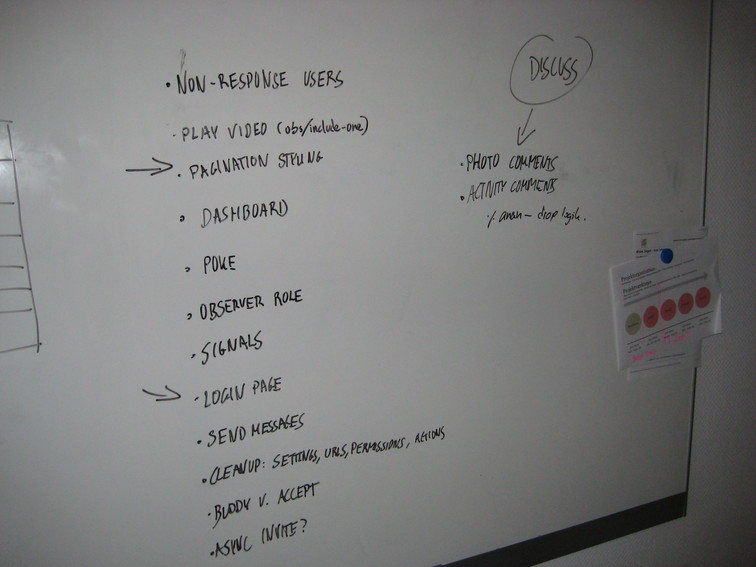 • NON-RESPONSE USERS
• PLAY VIDEO (obs/include-one)
→ • PAGINATION STYLING
• DASHBOARD
• POKE
• OBSERVER ROLE
• SIGNALS
→ • LOGIN PAGE
• SEND MESSAGES
• CLEANUP: SETTINGS, URLS, PERMISSIONS, ACTIONS
• BUDDY V. ACCEPT
• ASYNC INVITE?
DISCUSS
• PHOTO COMMENTS
• ACTIVITY COMMENT
drop